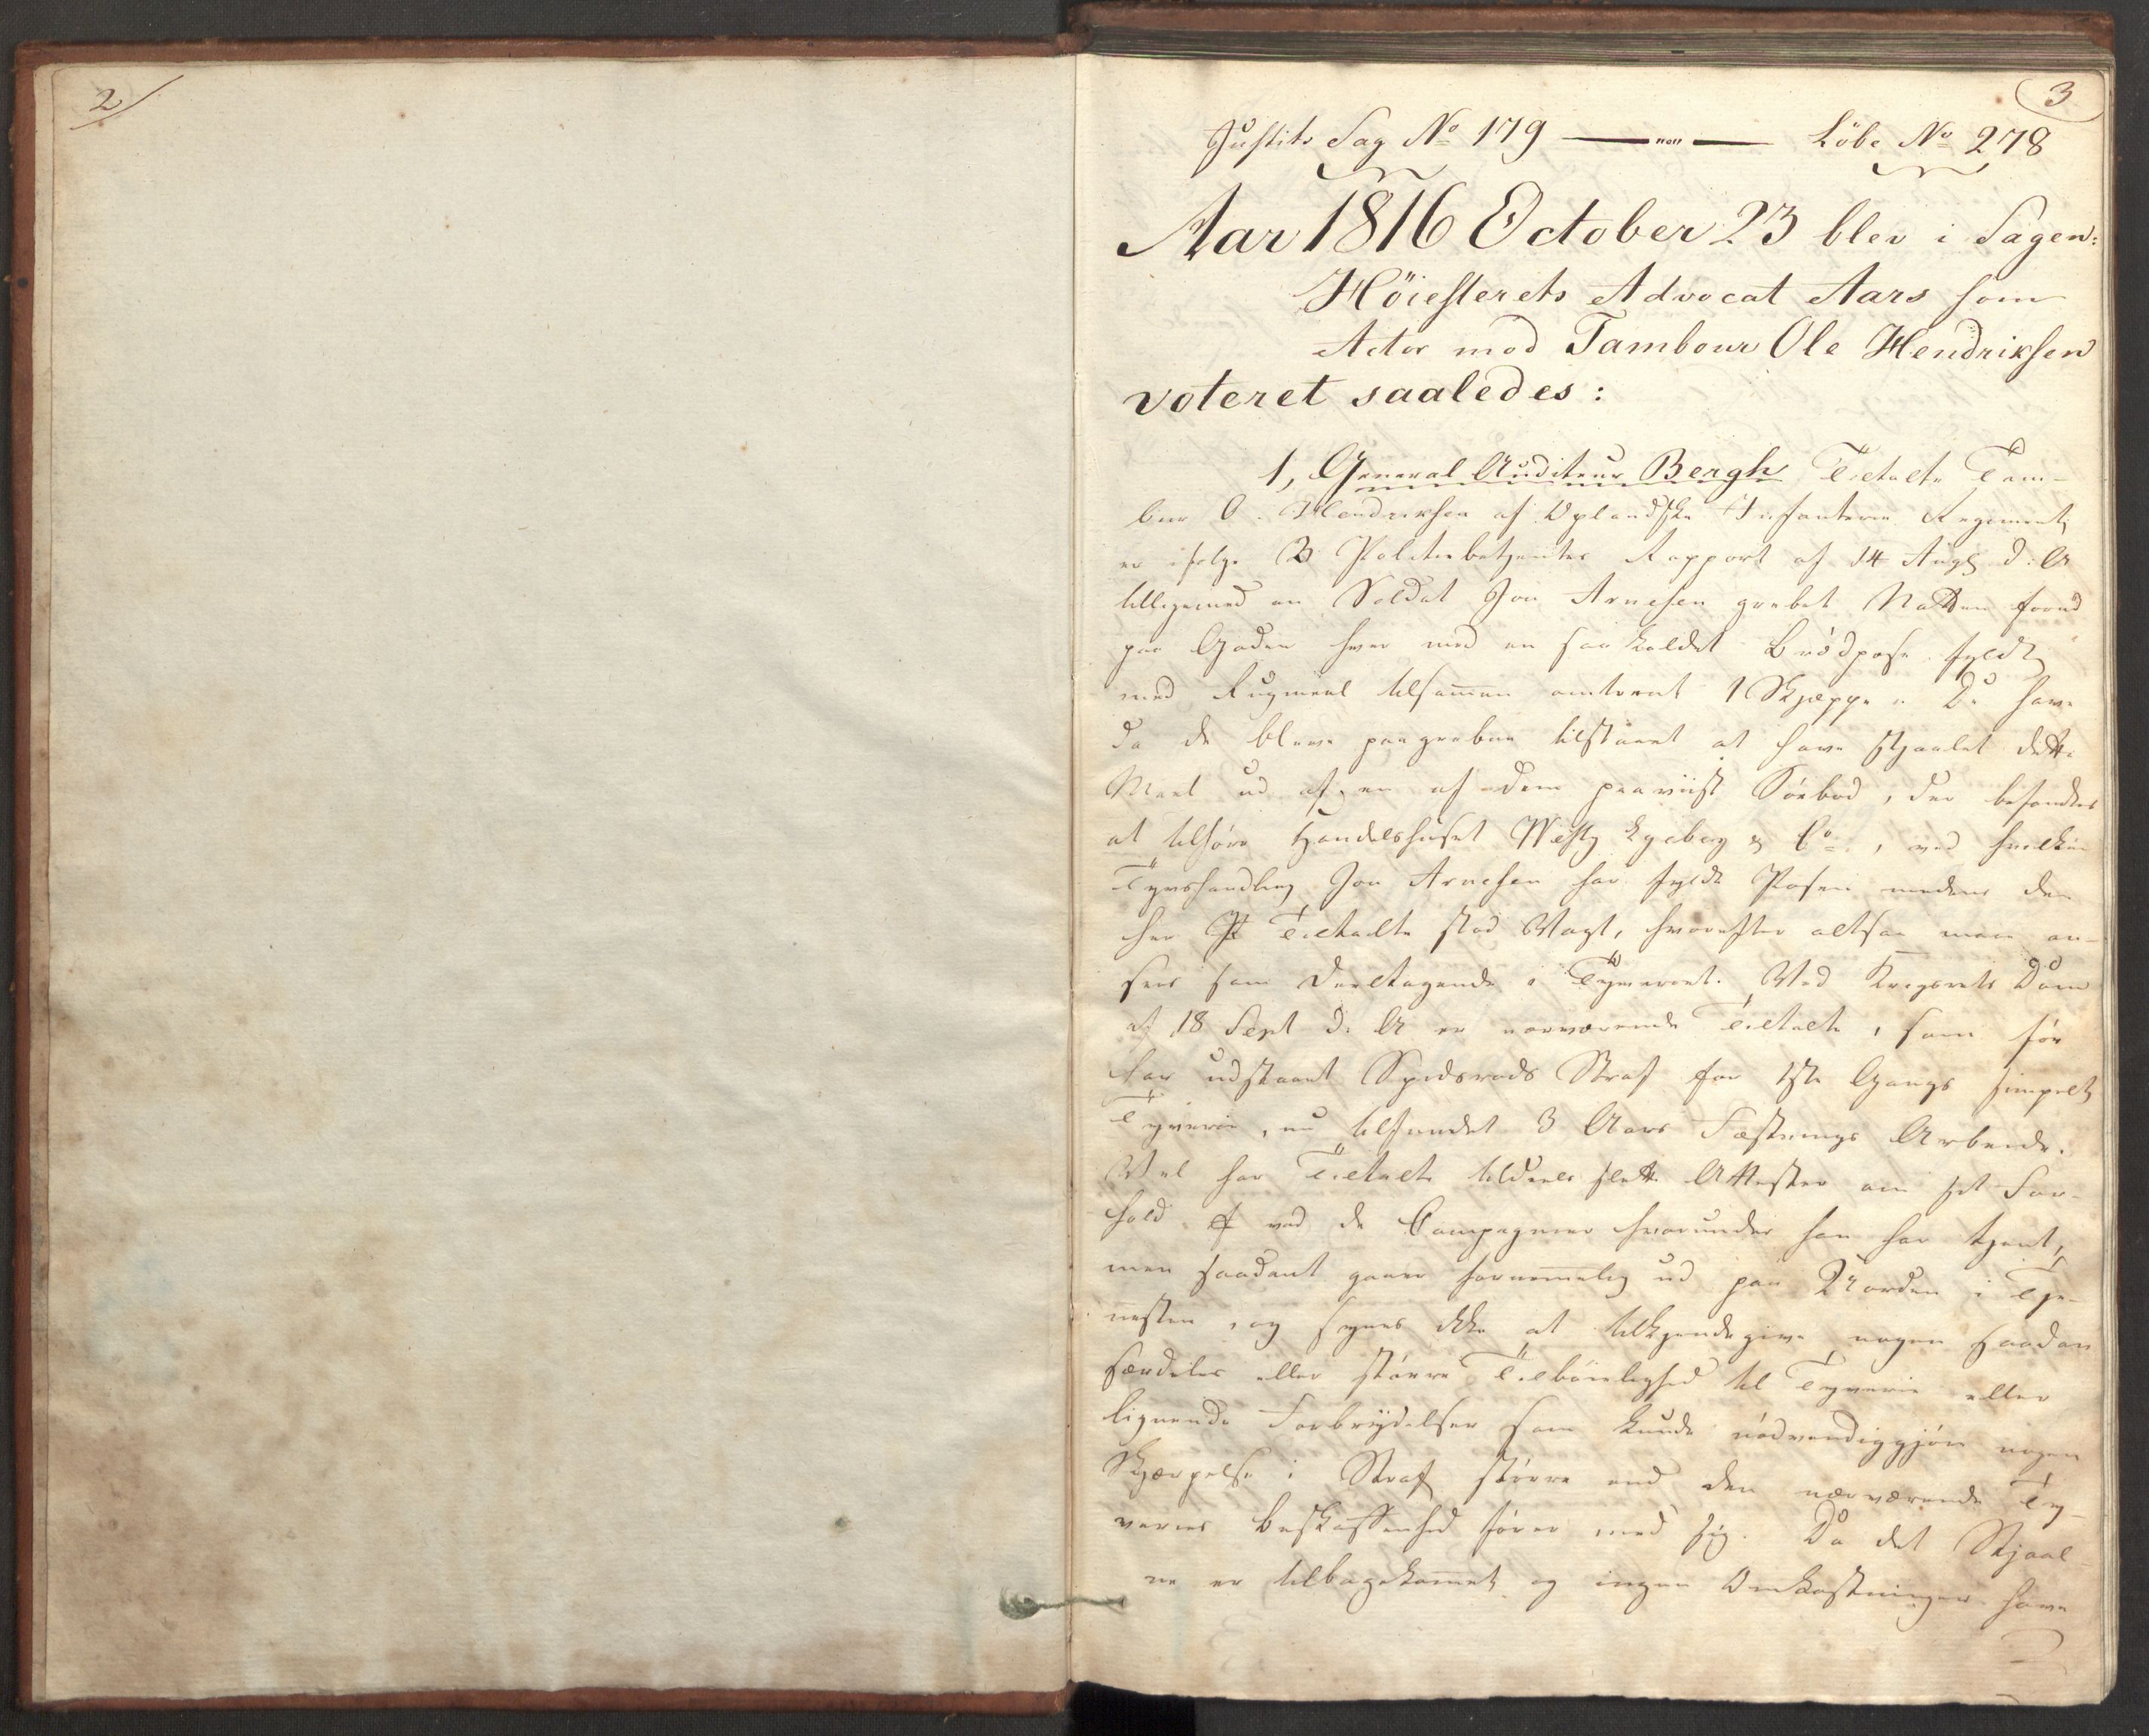 2
3
Justits Sag No 179 — " — Löbe No 278
Aar 1816 October 23 blev i Sagen:
Höiesterets Advocat Aars som
Actor mod Tambour Ole Hendriksen
voteret saaledes:
1, General Auditeur Bergh Tiltalte Tam-
bur O. Hendriksen af Oplandske Infanterie Regiment
er ifølge 2 Politiebetjentes Rapport af 14 Aug d. A
tilligemed en Soldat Jon Arnesen grebet Natten forud
paa Gaden hver med en saa kaldet Brödpose fyldt
med Rugmeel tilsammen omtrent 1 Skjeppe. De have
da de bleve paagrebne tilstaaet at have stjaalet dette
Meel ud af en af dem paaviist Söebod, der befandtes
at tilhøre Handelshuset Westy Egeberg & Co, ved hvilken
Tyvshandling Jon Arnesen har fyldt Posen medens den
her Tiltalte stod Vagt, hvorefter altsaa maae an-
sees som Deeltagende i Tyveriet. Ved Krigsrets Dom
af 18 Sept d. A er nærværende Tiltalte, som før
har udstaaet Spidsrods Straf for 1ste Gangs simpelt
Tyverie, nu tilfundet 3 Aars Fæstnings Arbeide.
Vel har Tiltalte tildeels slette Attester om sit For-
hold ved de Compagnier hvorunder han har tjent,
men saadant gaaer fornemmelig ud paa Uorden i Tje-
nesten, og synes ikke at tilkjendegive nogen saadan
særdeles eller større Tilbøielighed til Tyverie eller
lignende Forbrydelser som kunde nödvendiggjöre nogen
Skjærpelse i Straf större end den nærværende Ty-
veries Beskaffenhed fører med sig. Da det Stjaal-
ne er tilbagekommet og ingen Omkostninger have